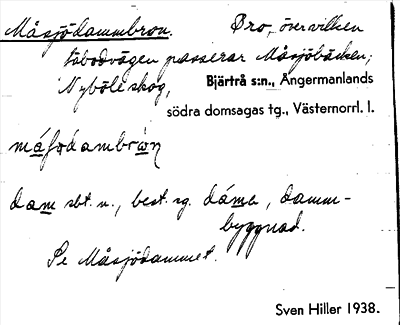 Måsjödammbron. Bro, över vilken
täbodvägen passerar Måsjöbäcken;
Nyböle skog, Bjärtrå s:n., Ångermanlands
södra domsagas tg., Västernorrl. l.
dam sbt. n., best. sg. dáma, damm-
byggnad.
Se Måsjödammet.
Sven Hiller 1938.